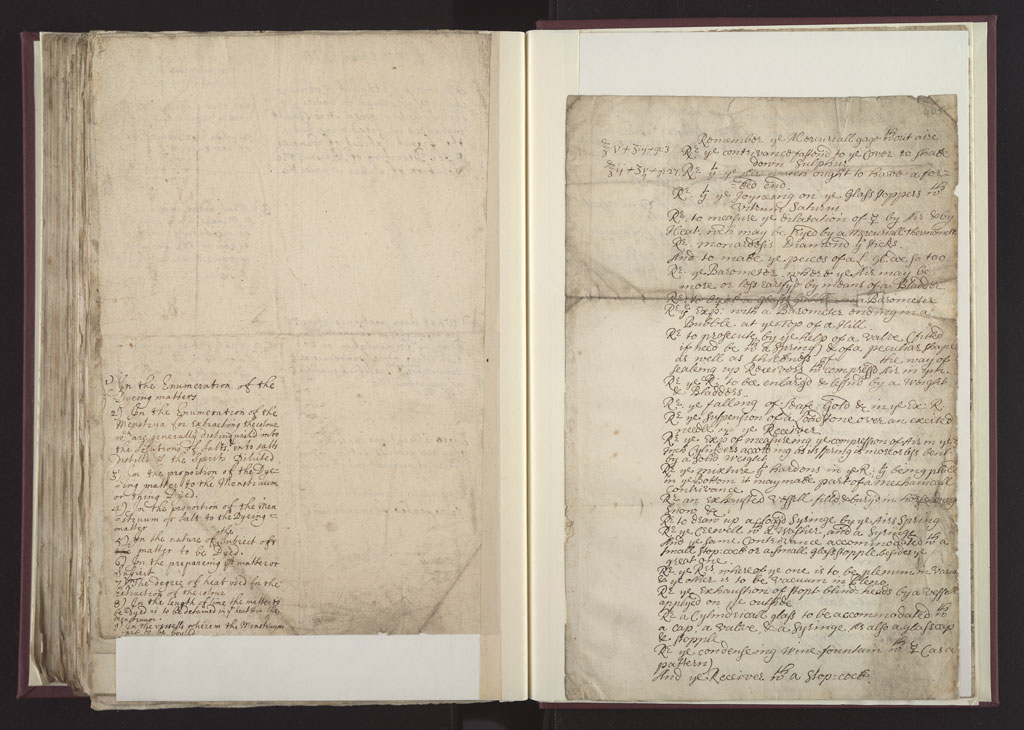 1) In the Enumeration of the
Dyeing matters
2) In the Enumeration of the
Menstrua for Extracting the colour
wch are generally distinguish'd into
the solutions of salts, into salts
Distill'd & the Spirits Distil'd
3) In the proportion of the Dye-
-ing matter to the Menstruum
or thing Dyed.
4) In the proportion of the Men-
-struum or Salt to the Dyeing
matter
5) In the nature of the Subject or
matter to be Dyed.
6) In the prepareing ye matter or
subject
7) The degree of heat used for the
Extraction of the colour
8) In the length of time the matter to
be Dyed is to be detained in heat in the
menstruum.
9) In the vessells wherein the Menstruum
is to be boyld
Remember ye Mercuriall gage wthout aire
Re ye contrivance fastend to ye Cover to shake
down Sulphur
Re yt ye Air which ought to have a for-
-ked end.
Re yt ye Joyneing on ye Glass stoppers wth
Vitrum Saturni
Re to measure ye dilatation of ☿ by Air & by
Heat, wch may be tryed by a Mercuriall thermomete
Re monardess Diamond yt sticks
And to make ye peices of a
Re ye Barometer where ye Air may be
more or less rarify'd by means of a Bladder
a Barometer
Re ye Exps: with a Barometer ending in a
Bubble at ye Top of a Hill.
Re to prosecute by ye help of a valve (fitted
if need be wth a spring) & of a peculiar shape
as well as thickness of the way of
sealing up Receivers wth compressd Air in ym.
Re ye Rs to be enlargd & lessnd by a Weight
& Bladders.
Re ye falling of Leafe Gold &c in ye Ex: R.
Re ye Suspension of a Loadstone over an excited
needle in ye Receiver
Re ye Exps of measureing ye compression of Air in ye
Cylinders according as its spring is more or less bent
by a solid weight
Re ye mixture yt hardens in ye R: yt being plac
in ye bottom it may make part of a mechanicall
Contrivance.
Re an exhausted vessell filld & buryd in
snow &c
Re to draw up a loaded Syringe by ye Airs spring
Re ye Screwell wth a Washer, and a Syringe
And ye same Contrivance accommodated wth a
small stop-cock or a small glass stopple besides ye
great one.
Re ye Rs whereof ye one is to be plenum in vacuo
& ye other is to be vacuum in Pleno
Re ye Exhaustion of stopt blind heads by a vessel
applyed on ye outside
Re a Cylindricall glass to be accommodated wth
a cap, a valve, & a Syringe As also a glass cap
& stopple.
Re ye condenseing Wine fountain wth ☿ (as a
pattern)
And ye Receiver wth a Stop-cock.